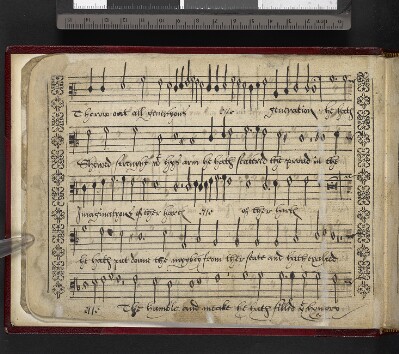 Thorow out all generations :// generation he hath
Shewed strengt in hys arm he hath scattered the proud in the
Imaginations of ther harts :// of ther harts
he hath put doune the myghty from ther seate and hath exalted
:// The humble and meake he hath filled